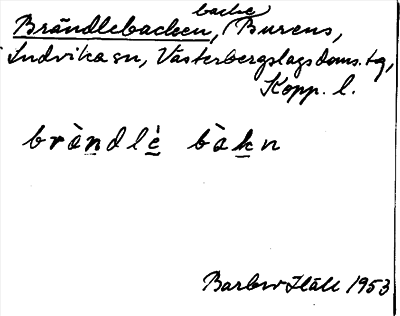 backe
Brändlebacken, Burens,
Ludvika sn, Västerbergslags doms. tg,
Kopp. l.
bràndlè bàkn
Barbro Häll 1953